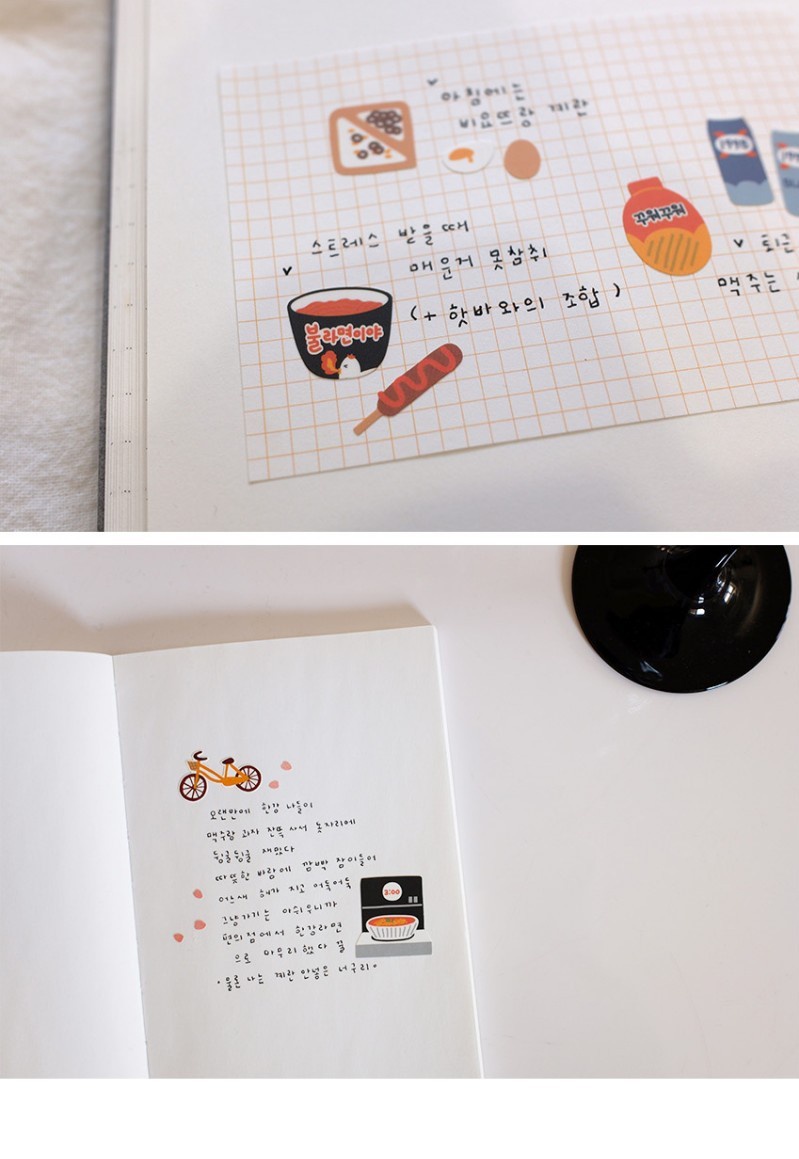 아침에는
비요뜨랑 계란
1998
꾸워꾸워
스트레스 받을때
매운거 못참취
(+ 핫바와의 조합)
불라면이야
퇴근
맥주는
오랜만에 한강 나들이
맥주랑 과자 잔뜩 사서 돗자리에
뒹굴뒹굴 재밌다
따뜻한 바람에 깜빡 잠이들어
어느새 해가 지고 어둑어둑
그냥가기는 아쉬우니까
편의점에서 한강라면
으로 마무리했다 꿀
3:00
•물론 나는 계란 안넣은 너구리•